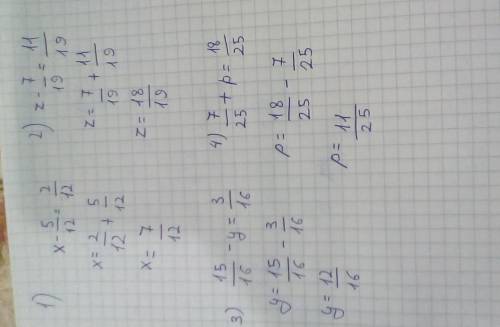 1) x - 5/12 = 2/12
x = 2/12 + 5/12
x = 7/12
2) z - 7/19 = 11/19
z = 7/19 + 11/19
z = 18/19
3) 15/16 - y = 3/16
y = 15/16 - 3/16
y = 12/16
4) 7/25 + p = 18/25
p = 18/25 - 7/25
p = 11/25